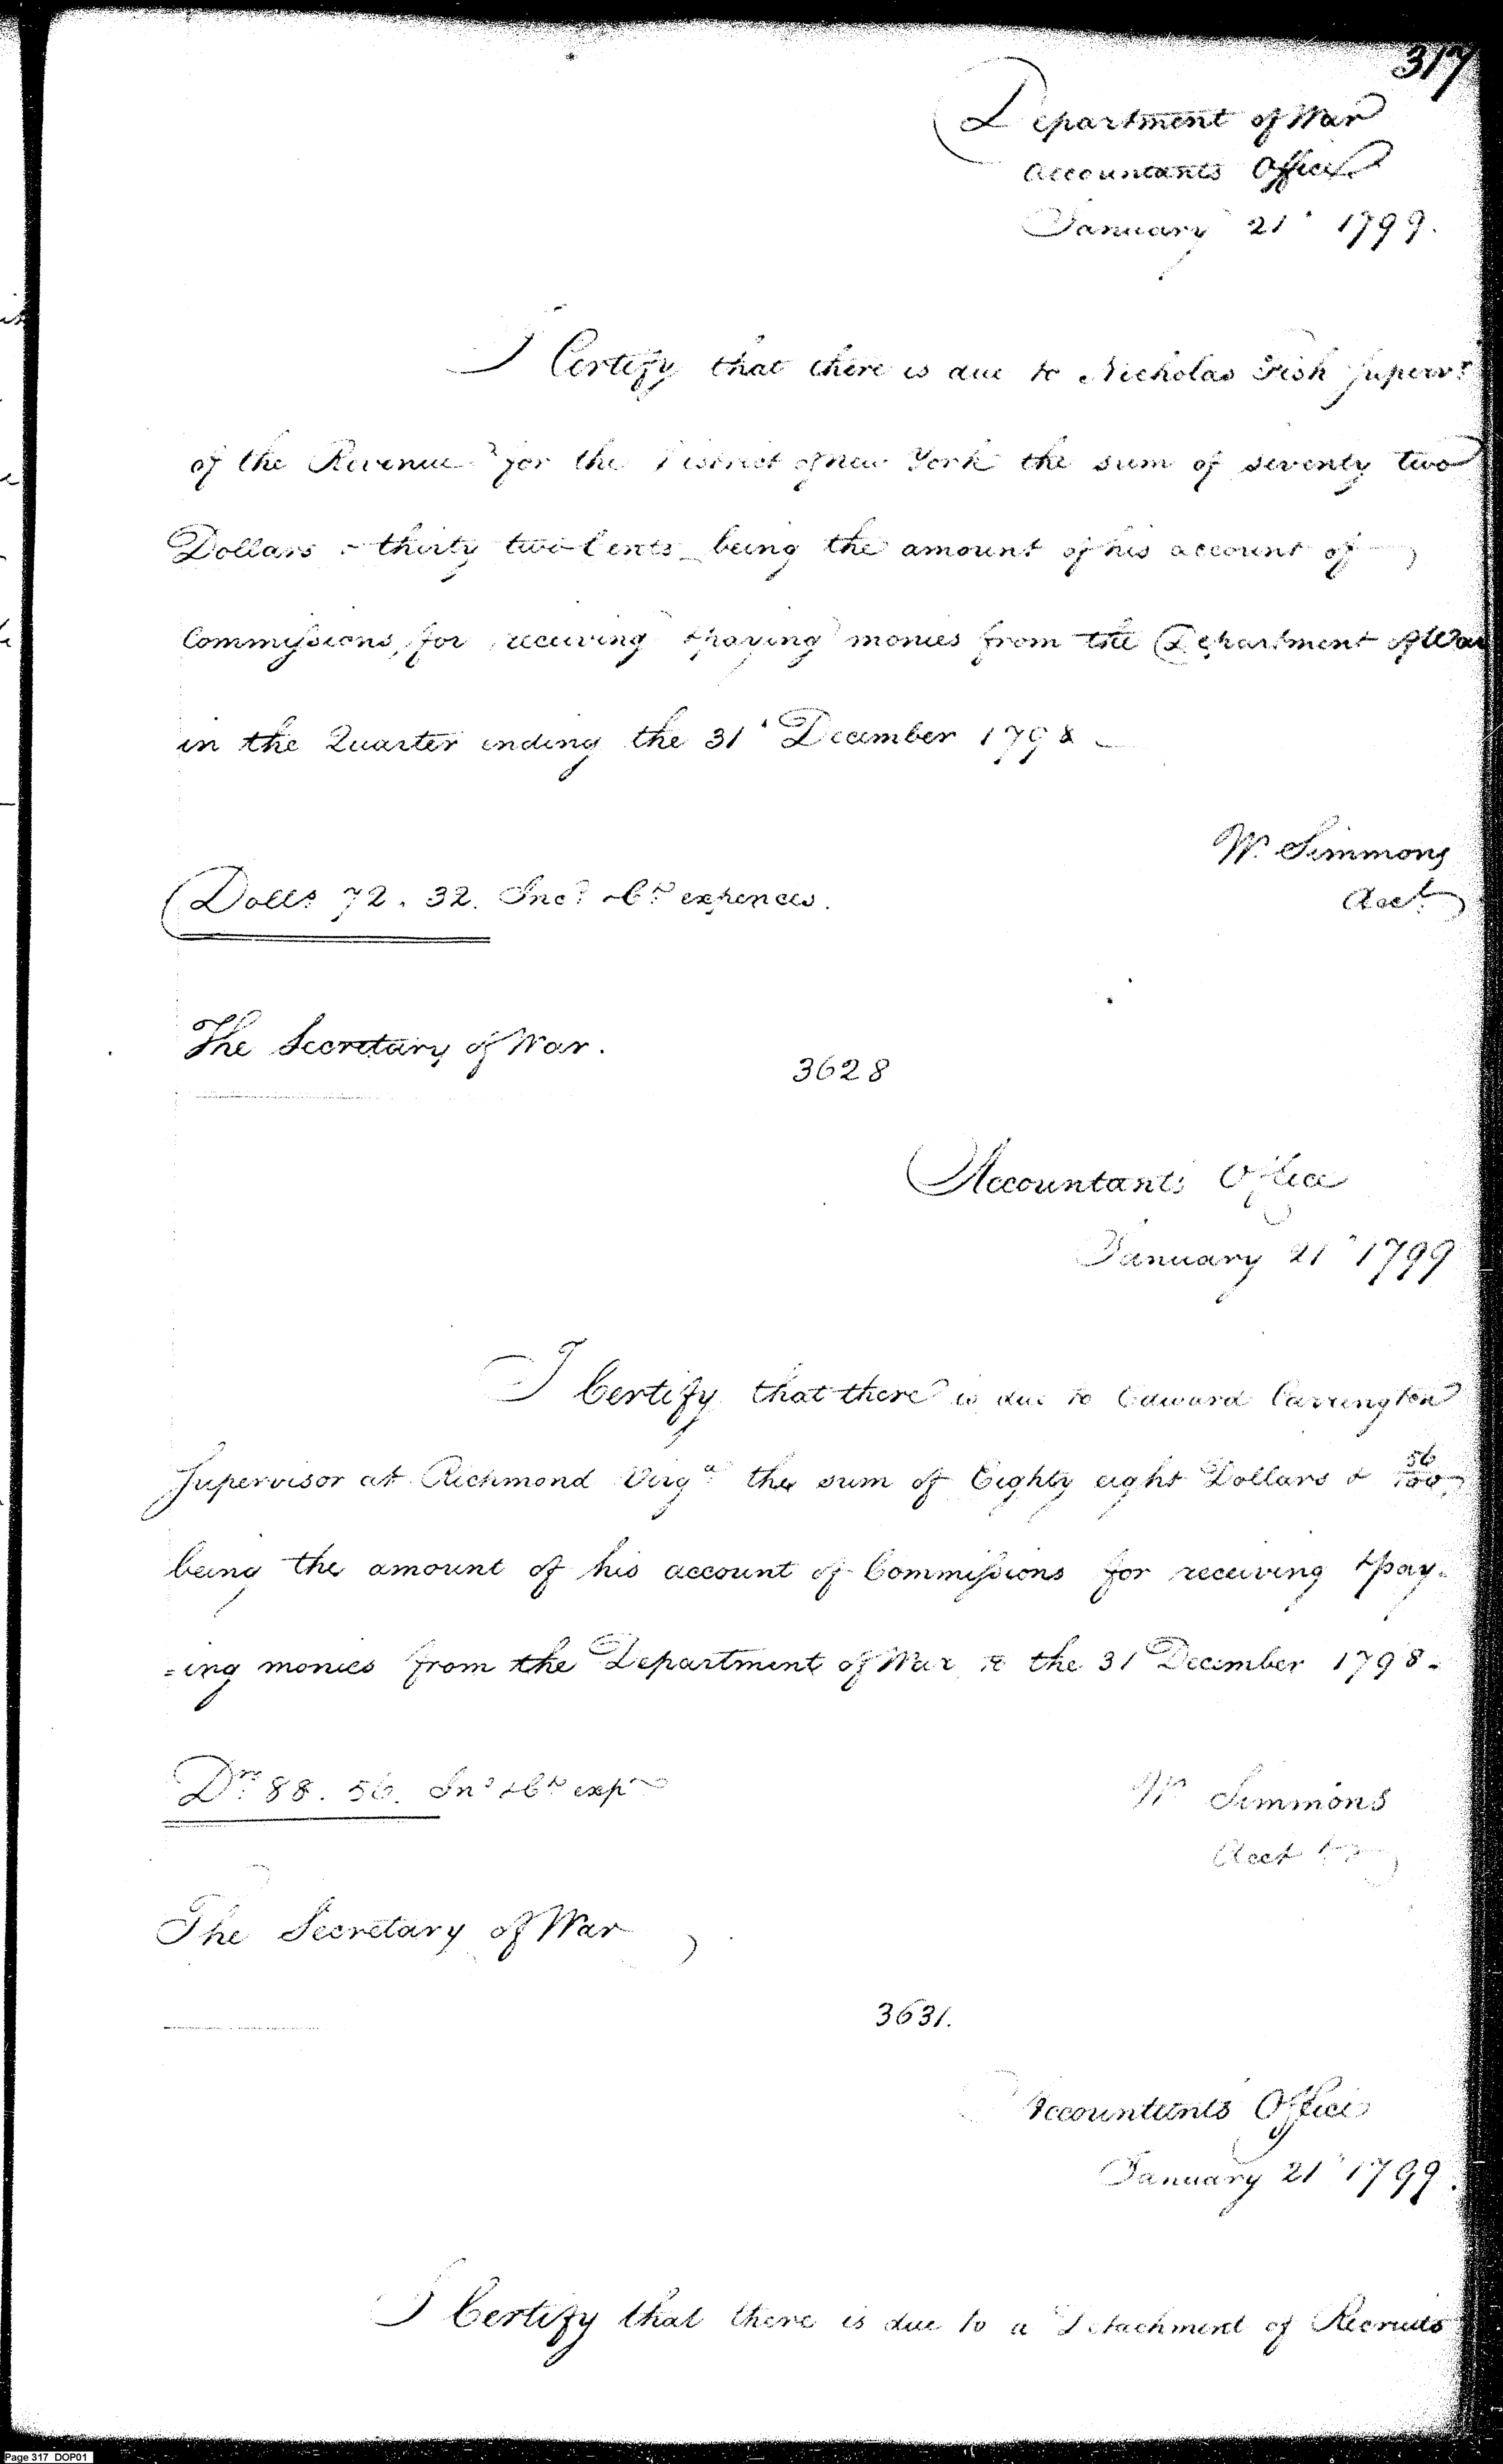 317
Department of War
Accountants Office
January 21st 1799.
I Certify that there is due to Nicholas Fish Supervr
of the Revenue for the District of New York the sum of seventy two
Dollars & thirty two Cents being the amount of his account of
Commissions, for receiving & paying monies from the Department of War
in the Quarter ending the 31st December 1798
W. Simmons
Acct
Dolls 72.32. Incl & Ct expences.
The Secretary of War.
3628
Accountants Office
January 21st 1799
I Certify that there is due to Edward Carrington
Supervisor at Richmond Virga the sum of Eighty eight Dollars & 56/100
being the amount of his account of Commissions for receiving & pay-
=ing monies from the Department of War to the 31 December 1798.
Drs 88.56. Inc & Ct exps
W Simmons
Acct
The Secretary of War
3631.
Accountants Office
January 21st 1799.
I Certify that there is due to a Detachment of Recruits
Page 317 DOP01